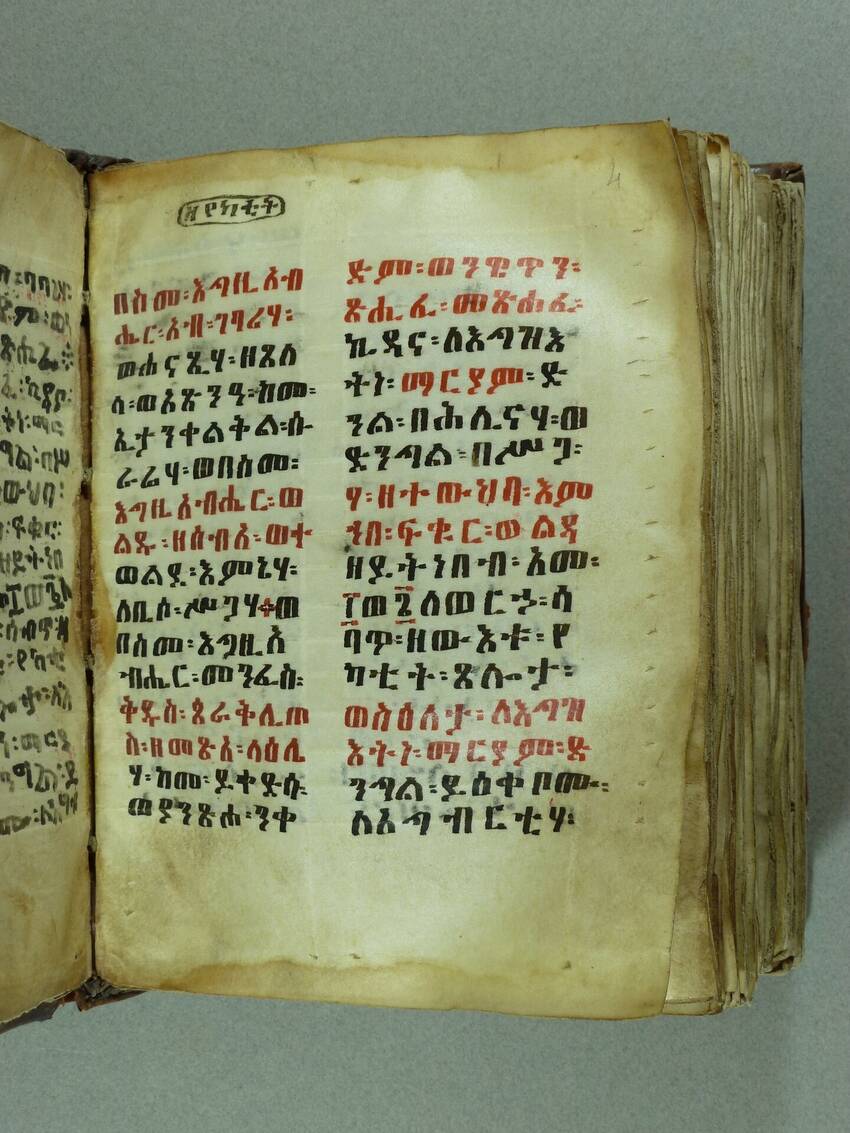 ዘየካቲት
4
በስመ፡እግዚአብ
ሔር፡አብ፡ገባሬሃ፡
ወሐናጺሃ፡ዘጸለ
ሳ፡ወአጽንዓ፡ከመ፡
ኢታንቀልቅል፡ሱ
ራሬሃ፡ወበስመ፡
እግዚአብሔር፡ወ
ልዱ፡ዘሰብአ፡ወተ
ወልደ፡እምኔሃ፡
ለቢሶ፡ሥጋሃ፡ወ
በስመ፡እግዚአ
ብሔር፡መንፈስ፡
ቅዱስ፡ጰራቅሊጠ
ስ፡ዘመጽአ፡ላዕሊ
ሃ፡ከመ፡ይቀድሱ፡
ወያንጽሐ፡ንቀ
ድም፡ወንዊጥን፡
ጽሒፈ፡መጽሐፈ፡
ኪዳና፡ለእግዝእ
ትነ፡ማርያም፡ድ
ንል፡በሕሊናሃ፡ወ
ድንግል፡በሥጋ፡
ሃ፡ዘተውህባ፡እም
ኀበ፡ፍቁር፡ወልዳ
ዘይትነበብ፡አመ፡
፲ወ፮ለወርኃ፡ሳ
ባጥ፡ዘውእቱ፡የ
ካቲት፡ጸሎታ፡
ወስዕለታ፡ለእግዝ
እትነ፡ማርያም፡ድ
ንግል፡ይዕቀቦሙ፡
ለአግብርቲሃ፡